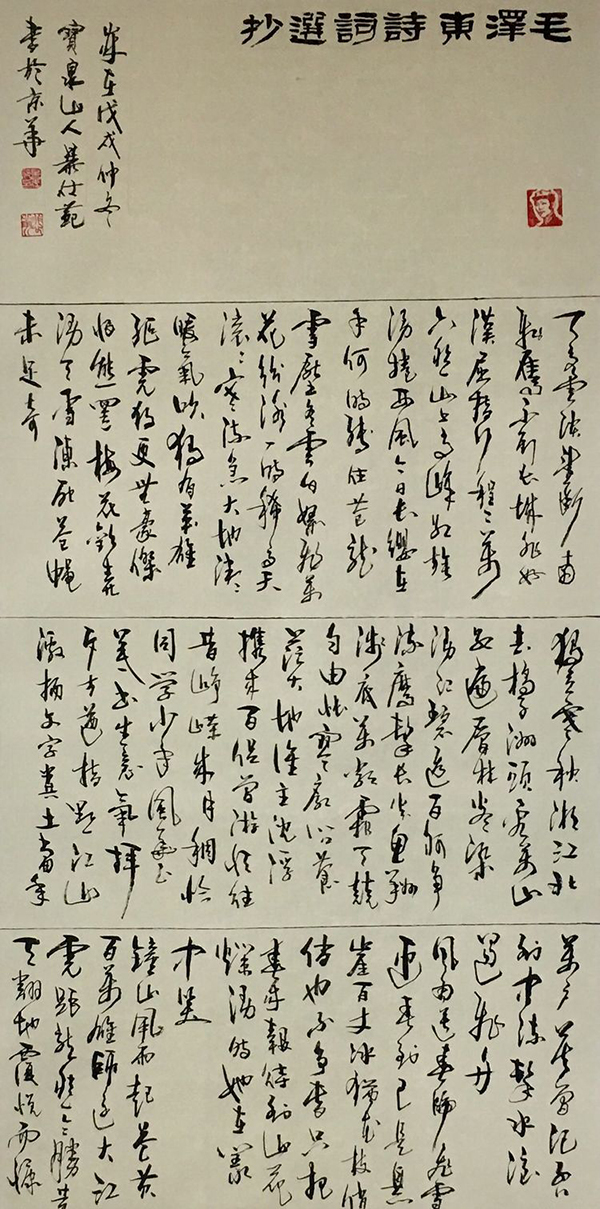 毛澤東詩詞選抄
天高雲淡望斷南
飛雁不到長城非好
漢屈指行程二萬
六盤山上高峰紅旗
漫捲西風今日長纓在
手何時縛住蒼龍
雪壓冬雲白絮飛萬
花紛謝一時稀高天
滾〻寒流急大地微〻
暖氣吹獨有英雄
驅虎豹更無豪傑
怕熊羆梅花歡喜
漫天雪凍死蒼蠅
未足奇
獨立寒秋湘江北
去橘子洲頭看萬山
紅遍層林盡染
漫江碧透百舸爭
流鷹擊長空魚翔
淺底萬類霜天競
自由悵寥廓問蒼
茫大地誰主沈浮
攜來百侶曾游憶往
昔崢嶸歲月稠恰
同学少年風華正
茂書生意氣揮
斥方遒指點江山
激揚文字糞土當年
萬戶侯曾記否
到中流擊水浪
遏飛舟
風雨送春歸飛雪
迎春到已是懸
崖百丈冰猶有花枝俏
俏也不爭春只把
春來報待到山花
爛漫時她在叢
中笑
鐘山風雨起蒼黃
百萬雄師過大江
虎踞龍盤今勝昔
天翻地覆慨而慷
歲在戊戌仲冬
寶泉山人
書於京華